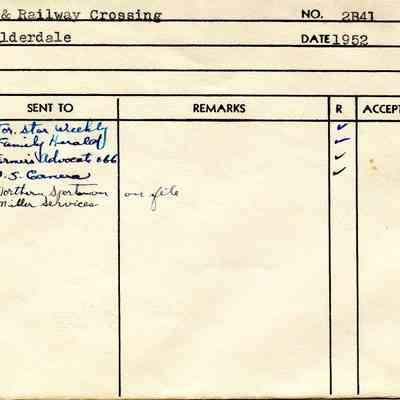 & Railway Crossing NO. 2B41
lderdale DATE 1952
SENT TO REMARKS R ACCEPT
Tor. Star Weekly ✓
Family Herald ✓
armers Advocate 66 ✓
U.S. Camera ✓
Northern Sportsman on file
Miller Services